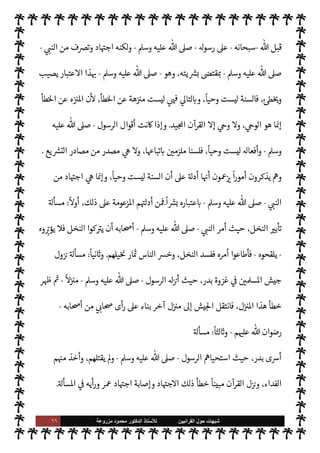 قبل الله -سبحانه - على رسوله - صلى الله عليه وسلم - ولكنه اجتهاد وتصرف من النبي -
صلى الله عليه وسلم - بمقتضى بشريته، وهو - صلى الله عليه وسلم - بهذا الاعتبار يصيب
ويخطئ، فالسنة ليست وحياً، وبالتالي فهي ليست منزهة عن الخطأ، لأن المنزه عن الخطأ
إنما هو الوحي، ولا وحي إلا القرآن المجيد. وإذا كانت أقوال الرسول - صلى الله عليه
وسلم - وأفعاله ليست وحياً، فلسنا ملزمين باتباعها، ولا هي مصدر من مصادر التشريع .
وهم يذكرون أموراً يزعمون أنها أدلة على أن السنة ليست وحياً، وإنما هي اجتهاد من
النبي - صلى الله عليه وسلم - باعتباره بشراً.فمن أدلتهم المزعومة على ذلك، أولاً: مسألة
تأبير النخل، حيث أمر النبي - صلى الله عليه وسلم - أصحابه أن يتركوا النخل فلا يؤبروه
- يلقحوه - فأطاعوا أمره ففسد النخل، وخسر الناس ثمار نخيلهم. وثانياً: مسألة نزول
جيش المسلمين في غزوة بدر، حيث أنزله الرسول - صلى الله عليه وسلم - منزلاً - ثم ظهر
خطأ هذا المنزل، فانتقل الجيش إلى منزل آخر بناء على رأى صحابي من أصحابه -
رضوان الله عليهم - وثالثاً: مسألة
أسرى بدر، حيث استحياهم الرسول - صلى الله عليه وسلم - ولم يقتلهم، وأخذ منهم
الفداء، ونزل القرآن مبيناً خطأ ذلك الاجتهاد وإصابة اجتهاد عمر ورأيه في المسألة.
شبهات حول القرآنيين للأستاذ الدكتور محمود مزروعة ٦٦